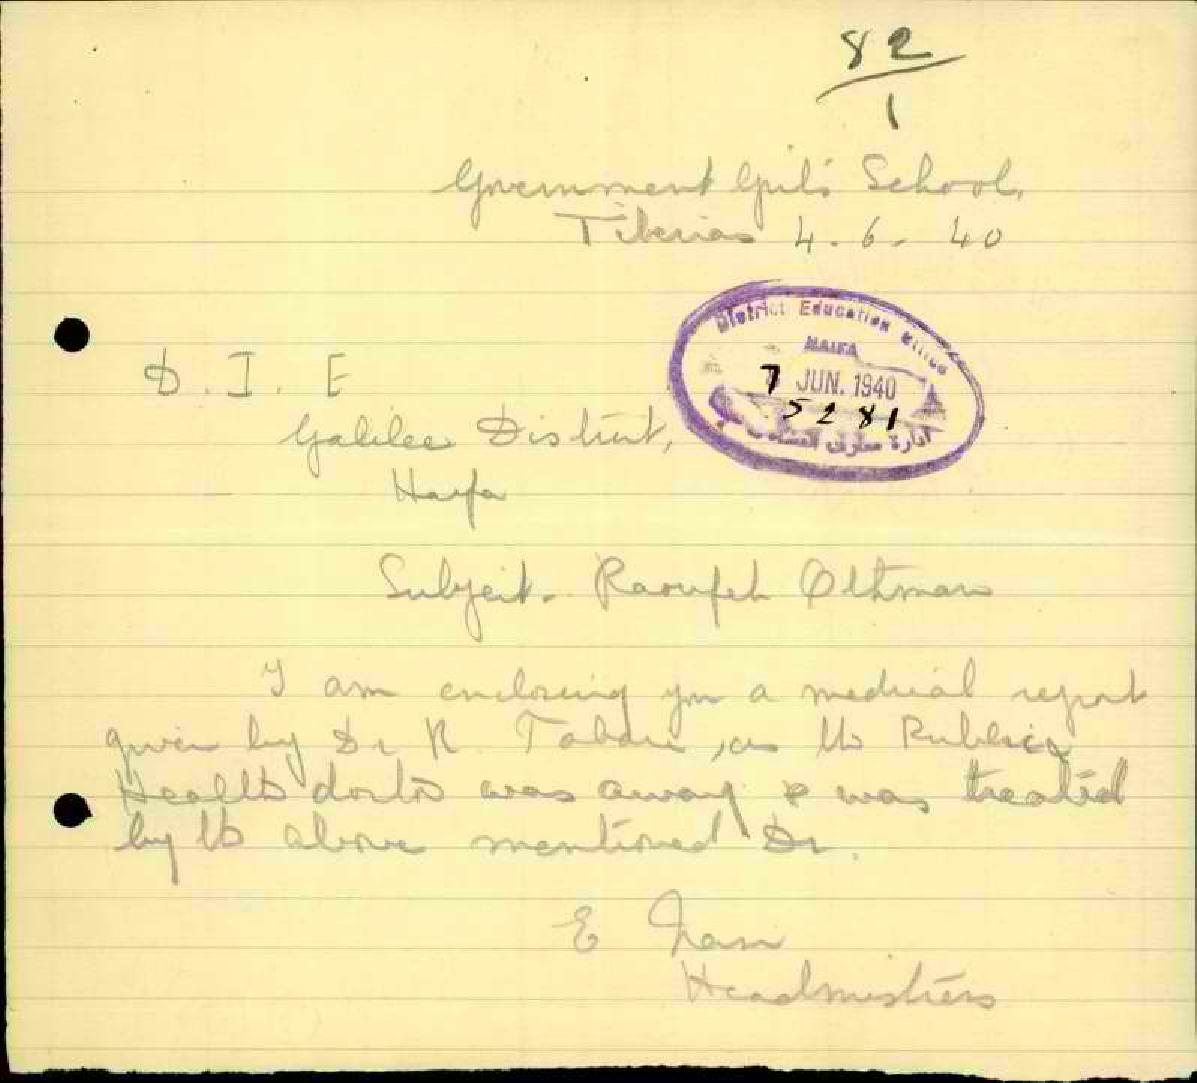 82
1
Government Girls School,
Tiberias 4. 6. 40
District Education Office
HAIFA
7 JUN. 1940
5281
ادارة معارف
D. I. E
Galilee District,
Haifa
Subject. Raoufeh Othman
I am enclosing you a medical report
given by Dr R. , as the Public
Health doctor was away & was treated
by the above mentioned Dr.
E
Headmistress